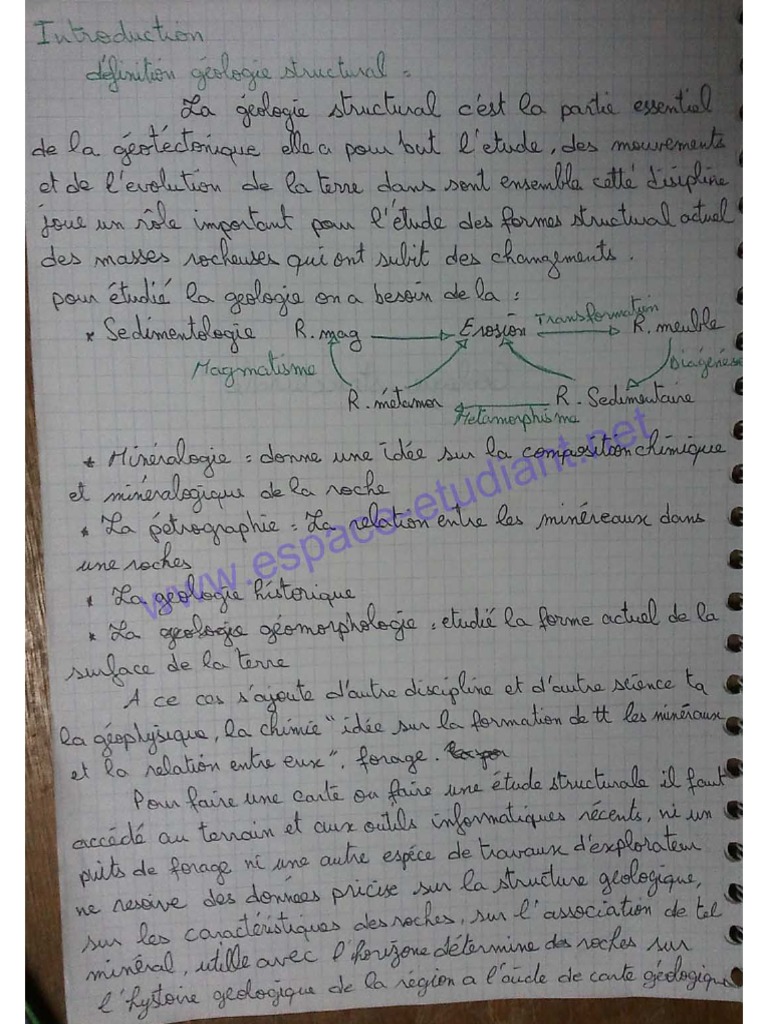 Introduction
définition géologie structural =
La géologie structural c'est la partie essentiel
de la géotéctonique elle a pour but l'etude, des mouvements
et de l'evolution de la terre dans sont ensemble cetté disipline
joue un rôle important pour l'étude des formes structural actuel
des masses rocheuses qui ont subit des changements.
pour étudié la geologie on a besoin de la :
* Sedimentologie R. mag Erosion Transformation R. meuble
Magmatisme Diagénèse
R. métamor Metamorphisme R. Sedimentaire
* Minéralogie = donne une idée sur la composition chimique
et minéralogique de la roche
* La pétrographie = La relation entre les minéreaux dans
une roches
* La geologie historique
* La geologie géomorphologie : etudié la forme actuel de la
surface de la terre
A ce ces s'ajoute d'autre discipline et d'autre science tq
la géophysique, la chimie "idée sur la formation de tt les minéraux
et la relation entre eux", forage.
Pour faire une carte ou faire une étude structurale il faut
accédé au terrain et aux outils informatiques récents, ni un
puits de forage ni une autre espéce de travaux d'explorateur
ne resoive des données précise sur la structure geologique,
sur les caractéristiques des roches, sur l'association de tel
minéral, utille avec l'horizone détermine des roches sur
l'hystoire geologique de la région a l'aide de carte géologique
www.espace-etudiant.net